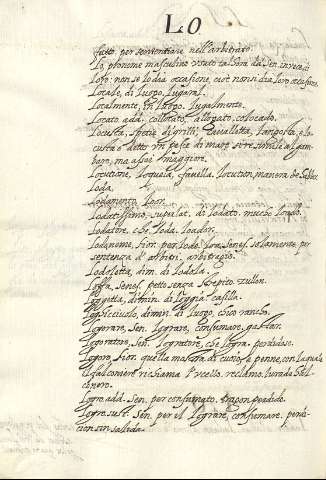 LO
fatto per sententiare nell'arbitrato.
Lo, pronome masculino usato talora da Sen. invece di
loro: non se lo dia occasione, cioè non si dia loro occasione
Locale, di luogo, lugaral.
Localmente, in luogo. lugalmente.
Locato, add. collocato, allogato, colocado.
Locusta, spetie di grilli, Cavalletta, langosta, e lo
custa è detto un pesce di mare simile al gam
baro, ma assai maggiore.
Locutione, loquela, favella, locution, manera de
Loda.
Lodamento, loor.
Lodatissimo, superlat. di lodato, mucho loado.
Lodatore, che loda, loador.
Lodaneme, Fior. per lodo. Sen. solamente per
sentenza d'arbitri, arbitragio.
Lodoletta, dim. di lodola.
Loffa, Sanes. petto senza strepito. zullon.
Loggetta, dimin. di loggia, casilla.
Loghicciuolo, dimin. di luogo, chico rancho.
Logorare, Sen. lograre, consumare, gastar.
Logoratore, Sen. logratore, che logra, perdidoso.
Logoro, Fior. quella massa di cuoio, e penne, con la quale
il falconiere richiama l'uccello. reclamo,
Logro, add. Sen. per consumato, perdido.
Logro, sust. Sen. per il lograre, consumare. perdi
cion sin salida.